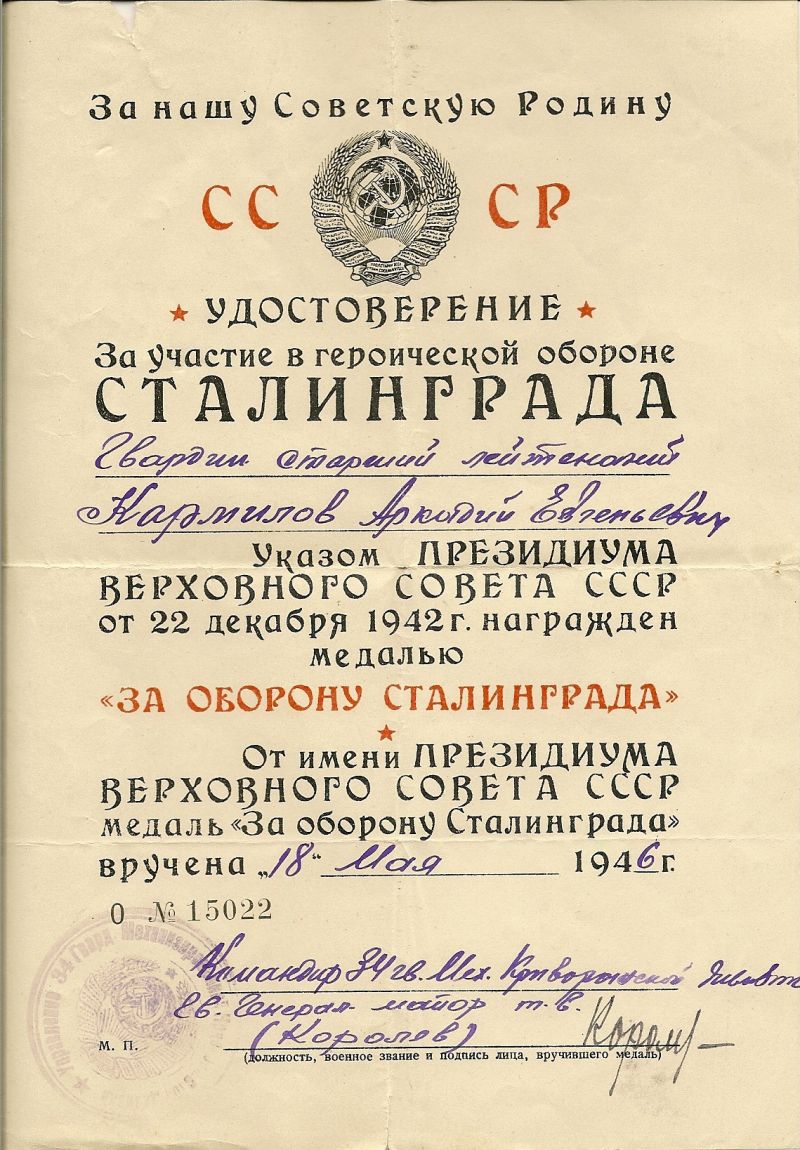 За нашу Советскую Родину
СС СР
УДОСТОВЕРЕНИЕ
За участие в героической обороне
СТАЛИНГРАДА
Гвардии старший лейтенант
Кармилов Аркадий Евгеньевич
Указом ПРЕЗИДИУМА
ВЕРХОВНОГО СОВЕТА СССР
от 22 декабря 1942 г. награжден
медалью
«ЗА ОБОРОНУ СТАЛИНГРАДА»
От имени ПРЕЗИДИУМА
ВЕРХОВНОГО СОВЕТА СССР
медаль «За оборону Сталинграда»
вручена „18“ Мая 1946 г.
О № 15022
Командир 34 гв. Мех. Криворожской
Гв. Генерал майор т. в.
(Королев)
М. П.
(должность, военное звание и подпись лица, вручившего медаль)
Управление 34 Гвард.